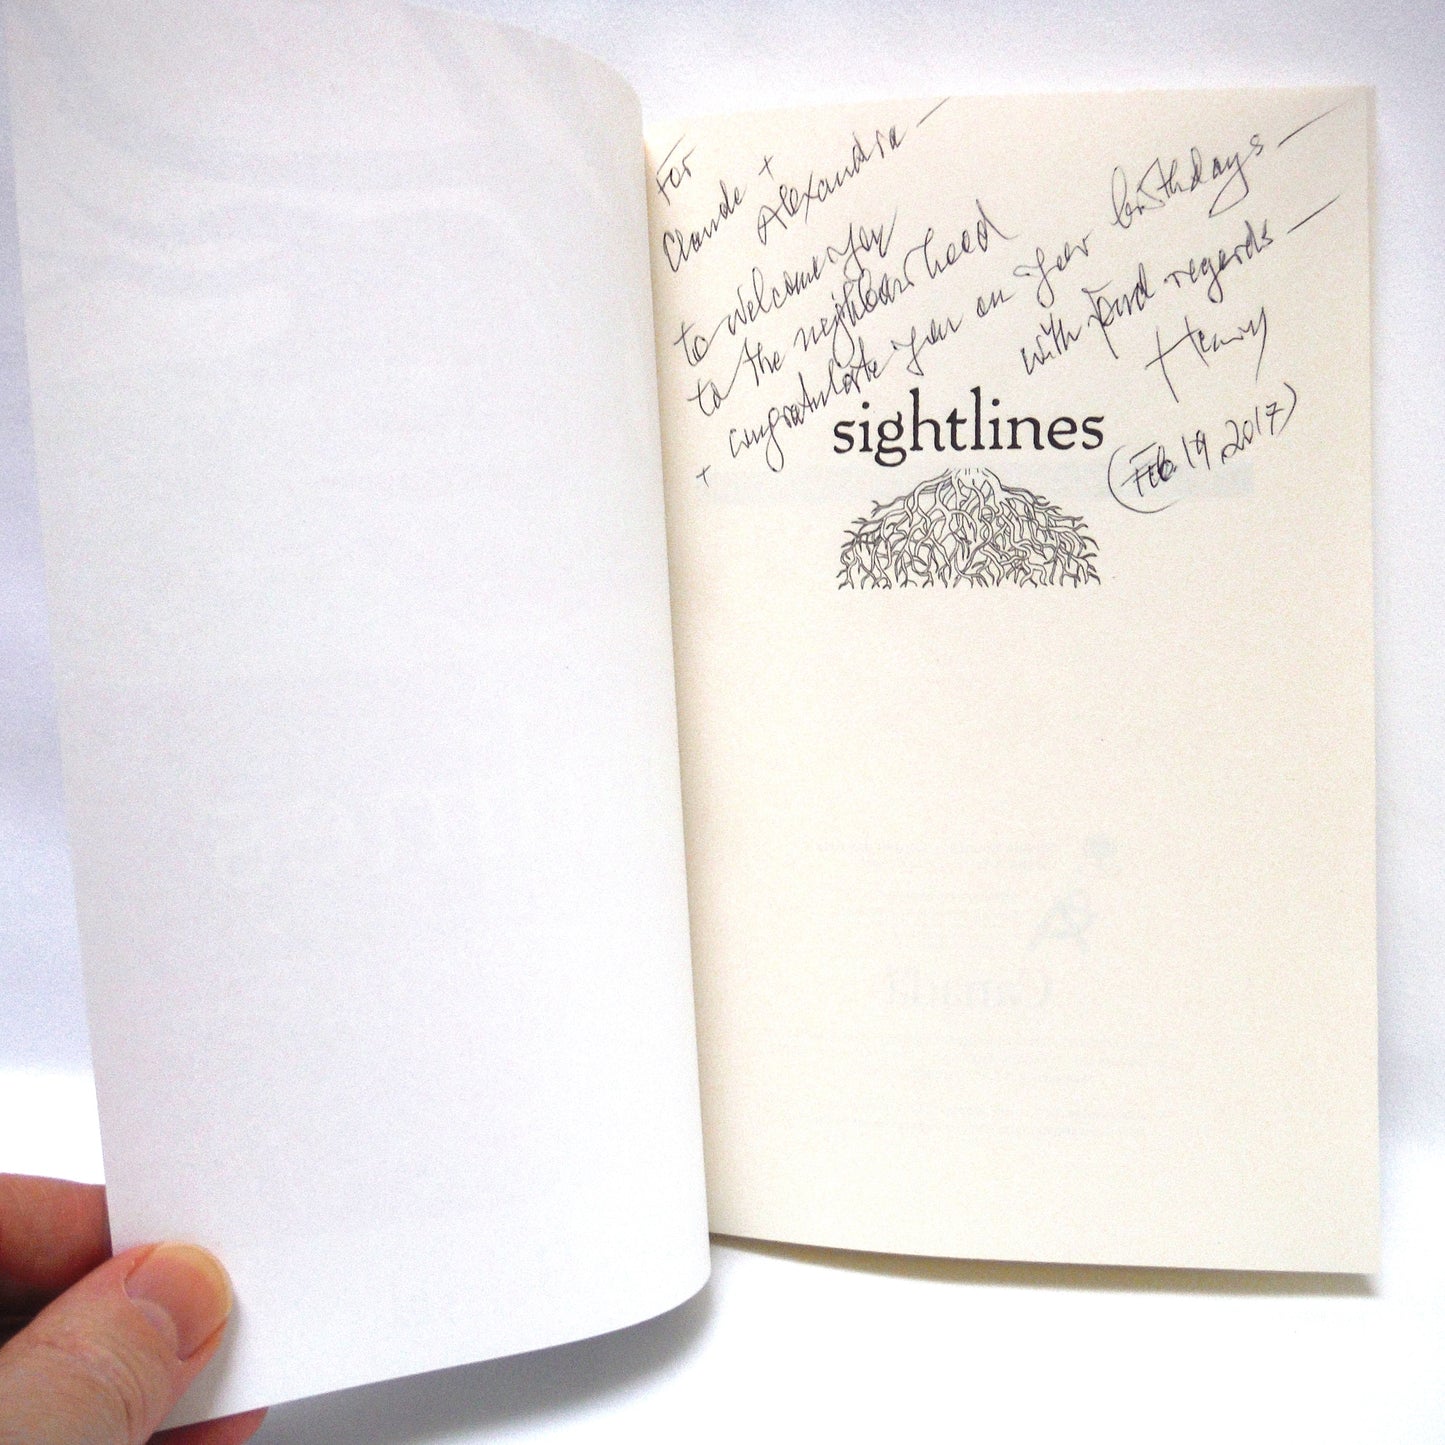 For
Claude +
Alexandra —
to welcome you
to the neighbourhood
+ congratulate you on your birthdays —
with kind regards —
Henry
(Feb 19, 2017)
sightlines
Canada